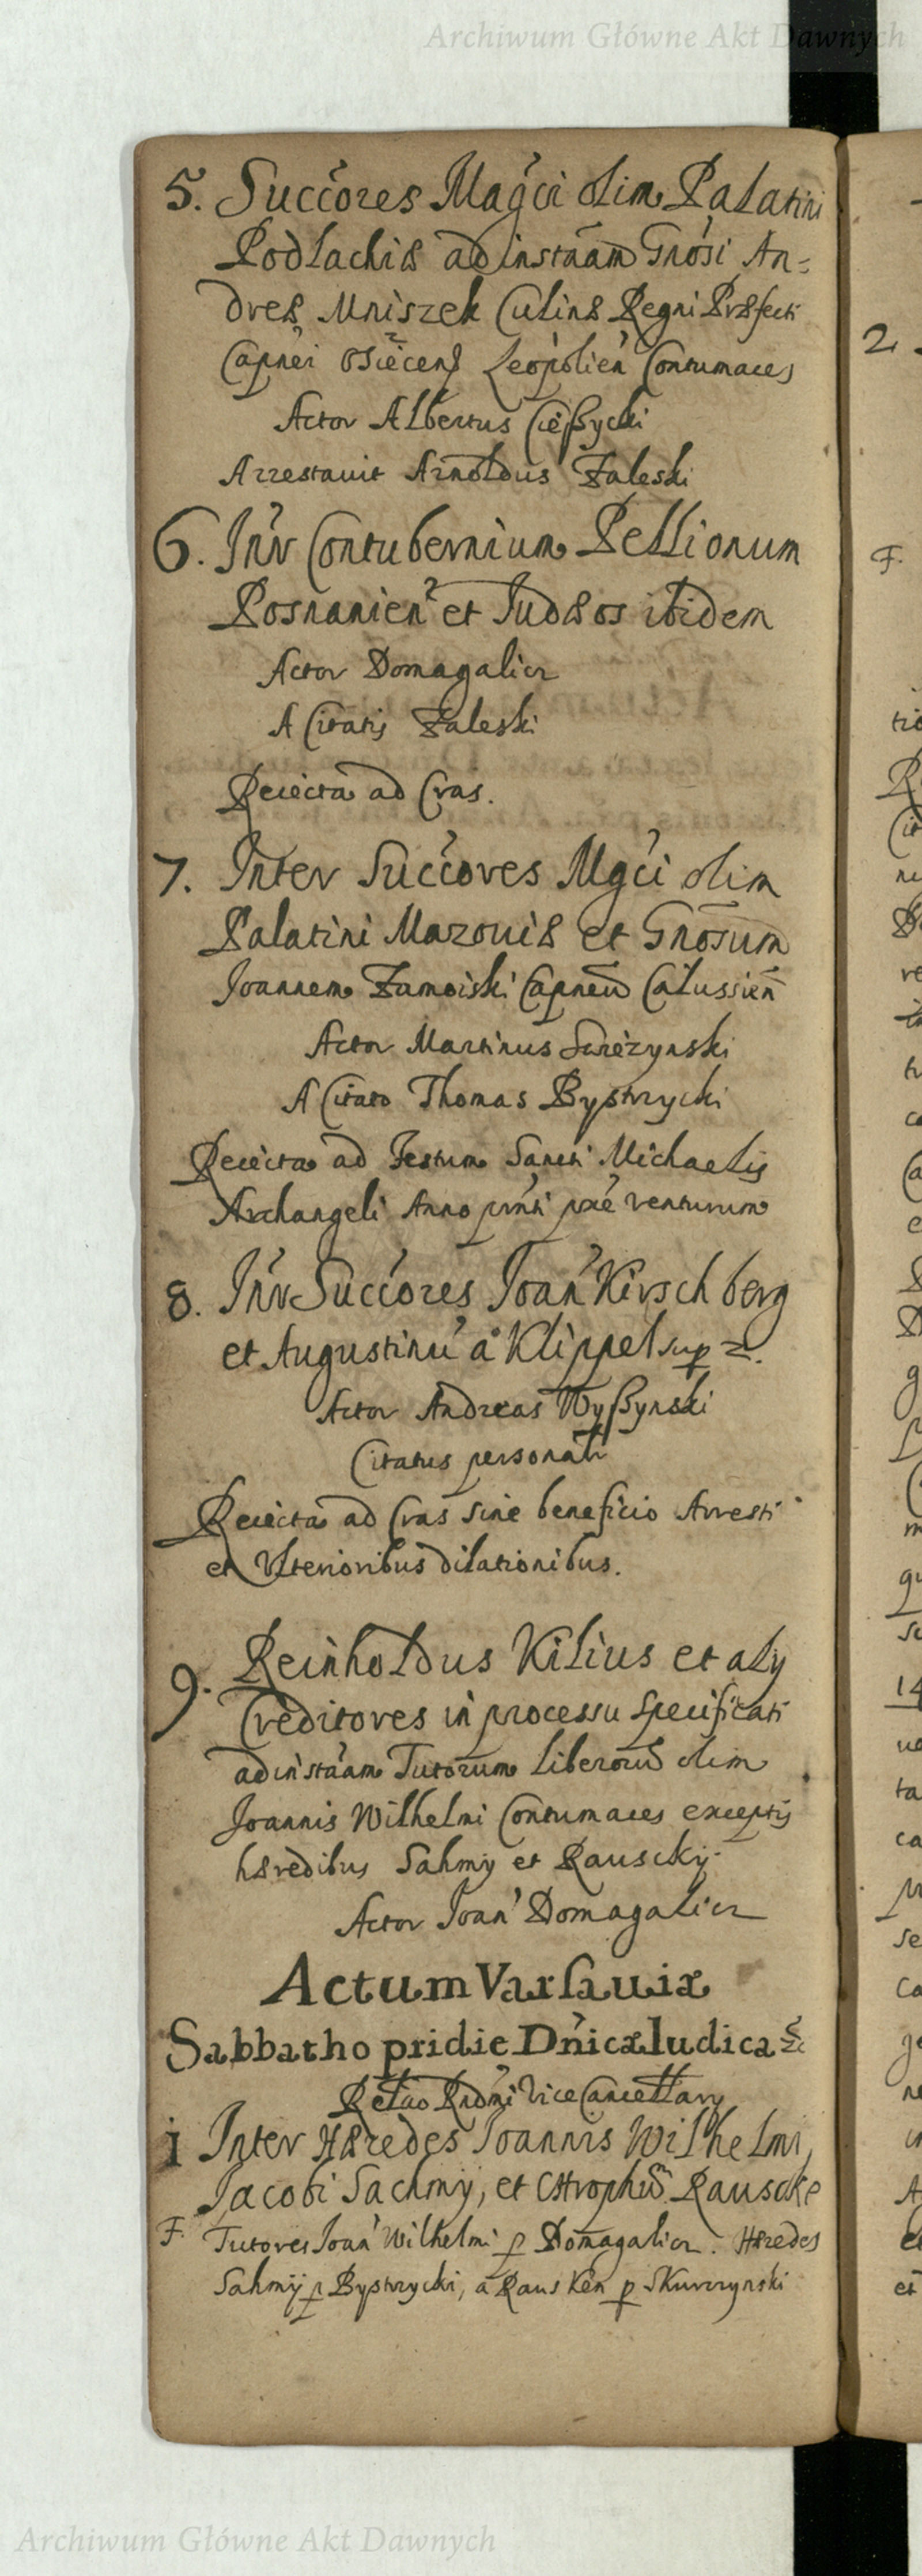 Archiwum Główne Akt Dawnych
5. Succ̃ores Mag̃ci olim Palatini
Podlachiæ ad instãam Gnõsi An-
dreæ Mniszek Culinæ Regni Præfecti
Capñei Osiecens Leopolien̄ Contumaces
Actor Albertus Cießycki
Arrestavit Arnoldus Zaleski
6. Inr̃ Contubernium Pellionum
Posnanien̄ et Judæos ibidem
Actor Domagalicz
A Citatis Zaleski
Reiecta ad Cras.
7. Inter Succ̃ores Mg̃ci olim
Palatini Mazouiæ et Gnõsum
Joannem Zamoiski Capneũ Calussien̄
Actor Martinus
A Citato Thomas Bystrzycki
Reiecta ad Festum Sancti Michaelis
Archangeli Anno pñti pxẽ venturum
8. Inr̃ Succ̃ores Joan̄ Kirschberg
et Augustinũ à Klippel sup
Actor Andreas Wyßynski
Citatus personalr̃
Reiecta ad Cras sine beneficio Arresti
et Ulterioribus dilationibus.
9. Reinholdus Kilius et alij
Creditores in processu specificati
ad instãam Tutorum Liberorũ olim
Joannis Wilhelmi Contumaces exceptis
hæredibus Sahmy et Rauscky.
Actor Joan̄ Domagalicz
Actum Varsauiæ
Sabbatho pridie Dñicæ Iudica &c
Relãõ Rndmĩ Vice Cancellarij
1 Inter Hæredes Joannis Wilhelmi,
Jacobi Sachmij, et Rauscke
F. Tutores Joan̄ Wilhelmi p Domagalicz. Hæredes
Sahmij p Bystrzycki, a Rausken p Skurzynski
Archiwum Główne Akt Dawnych